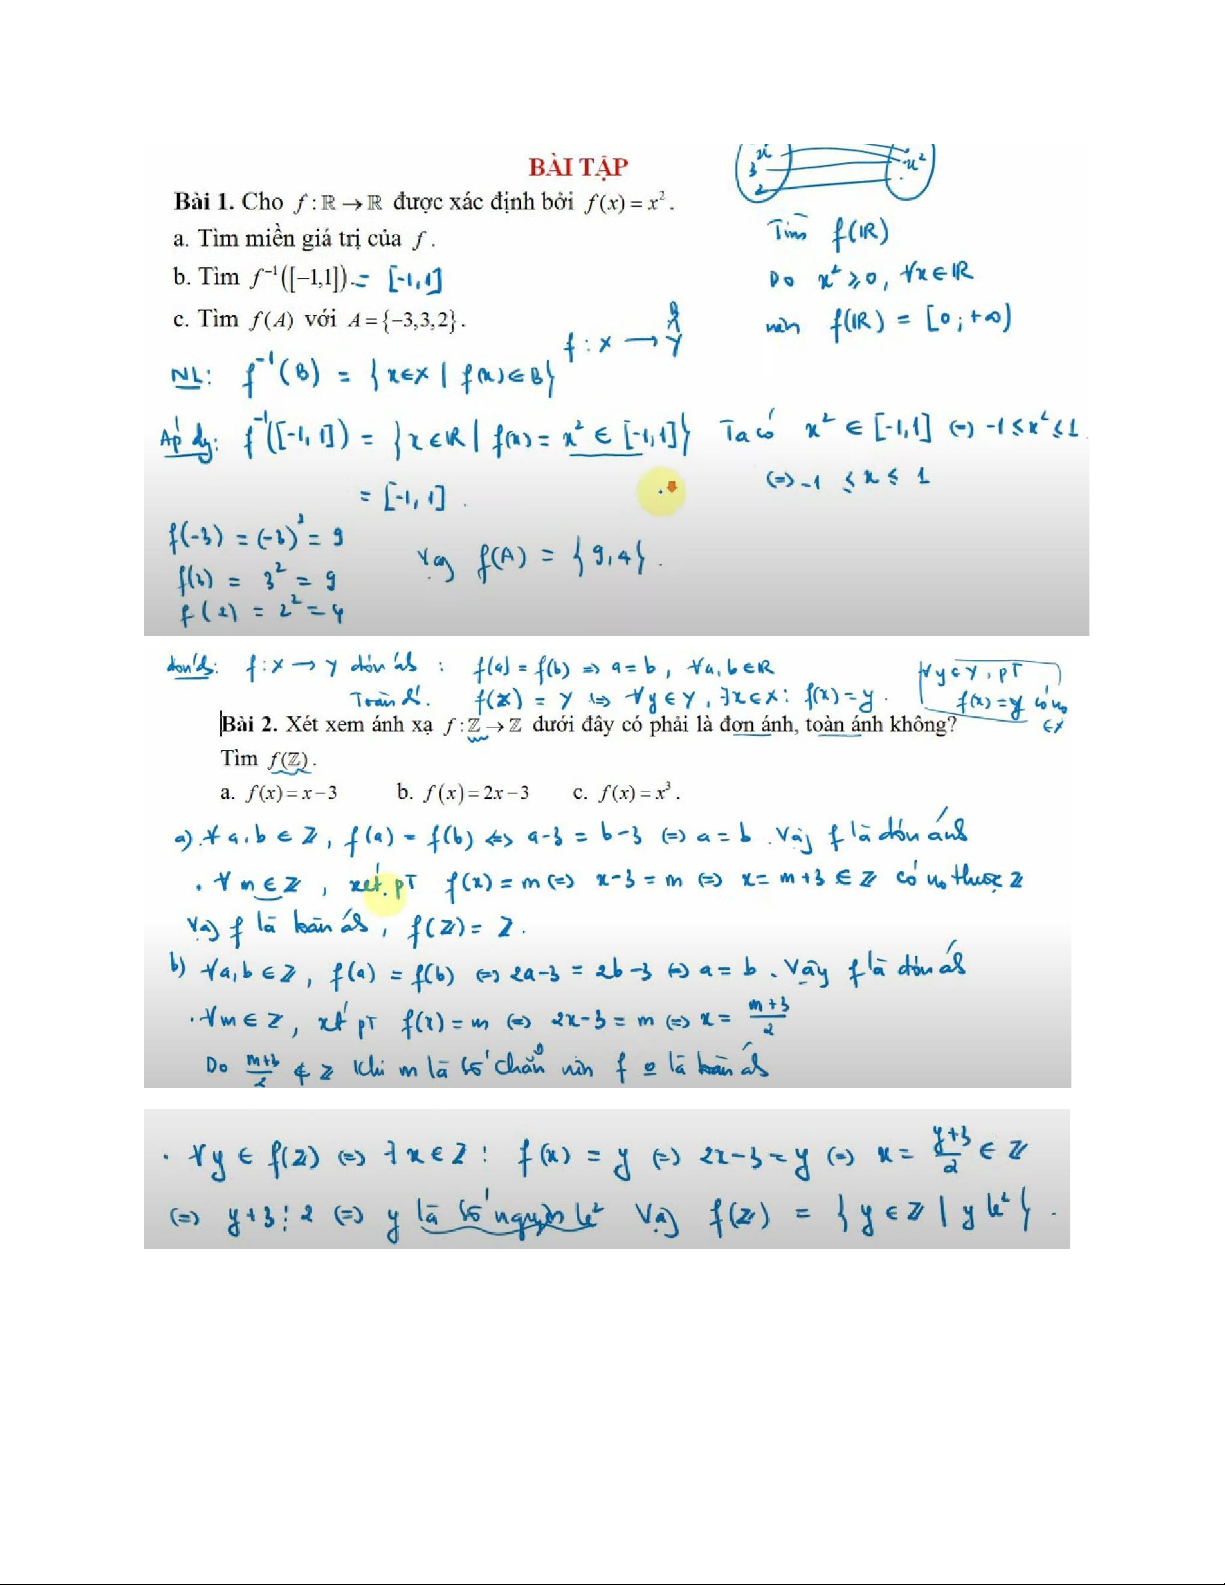 x
3
2
x²
BÀI TẬP
Bài 1. Cho f : ℝ → ℝ được xác định bởi f(x) = x².
a. Tìm miền giá trị của f.
Tìm f(ℝ)
b. Tìm f⁻¹([-1,1]). = [-1,1]
Do x² ≥ 0, ∀x∈ℝ
c. Tìm f(A) với A = {-3,3,2}.
nên f(ℝ) = [0; +∞)
f : X → Y
NL: f⁻¹(B) = {x∈X | f(x)∈B}
Áp dg: f⁻¹([-1,1]) = {x∈ℝ | f(x) = x² ∈ [-1,1]} Ta có x² ∈ [-1,1] (=) -1 ≤ x² ≤ 1
(=) -1 ≤ x ≤ 1
= [-1, 1].
f(-3) = (-3)² = 9
f(3) = 3² = 9
f(2) = 2² = 4
Vậy f(A) = {9,4}.
đơn á: f : X → Y đơn ánh : f(a) = f(b) => a = b, ∀a,b∈ℝ
Toàn á. f(X) = Y (=) ∀y∈Y, ∃x∈X: f(x) = y.
∀y∈Y, pT
f(x) = y có no
∈X
Bài 2. Xét xem ánh xạ f : ℤ → ℤ dưới đây có phải là đơn ánh, toàn ánh không?
Tìm f(ℤ).
a. f(x) = x - 3 b. f(x) = 2x - 3 c. f(x) = x³.
a) . ∀a,b ∈ ℤ, f(a) = f(b) <=> a-3 = b-3 (=) a = b. Vậy f là đơn ánh
. ∀m ∈ ℤ, xét pT f(x) = m (=) x-3 = m (=) x = m+3 ∈ ℤ có no thuộc ℤ
Vậy f là toàn ánh, f(ℤ) = ℤ.
b) ∀a,b ∈ ℤ, f(a) = f(b) (=) 2a-3 = 2b-3 (=) a = b. Vậy f là đơn ánh
. ∀m ∈ ℤ, xét pT f(x) = m (=) 2x-3 = m (=) x = (m+3)/2
Do (m+3)/2 ∉ ℤ khi m là số chẵn nên f o là toàn ánh
. ∀y ∈ f(ℤ) (=) ∃x∈ℤ : f(x) = y (=) 2x-3 = y (=) x = (y+3)/2 ∈ ℤ
(=) y+3 ⋮ 2 (=) y là số nguyên lẻ Vậy f(ℤ) = {y∈ℤ | y lẻ}.